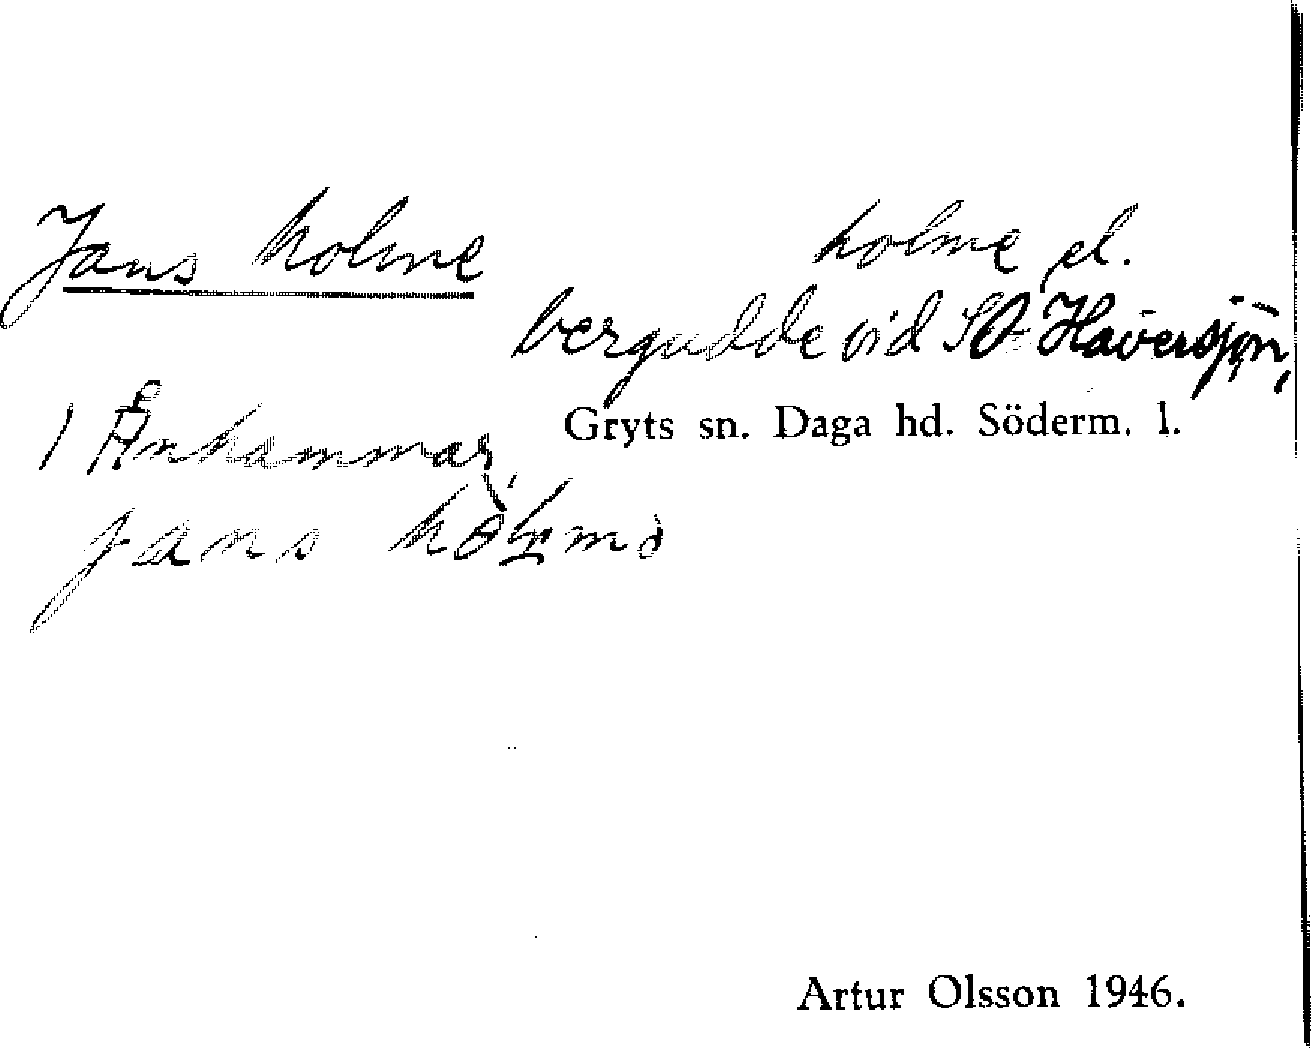 Jans holme
holme el.
bergudde vid St. Håversjön,
1 Änhammar,
Gryts sn. Daga hd. Söderm. l.
jans
Artur Olsson 1946.